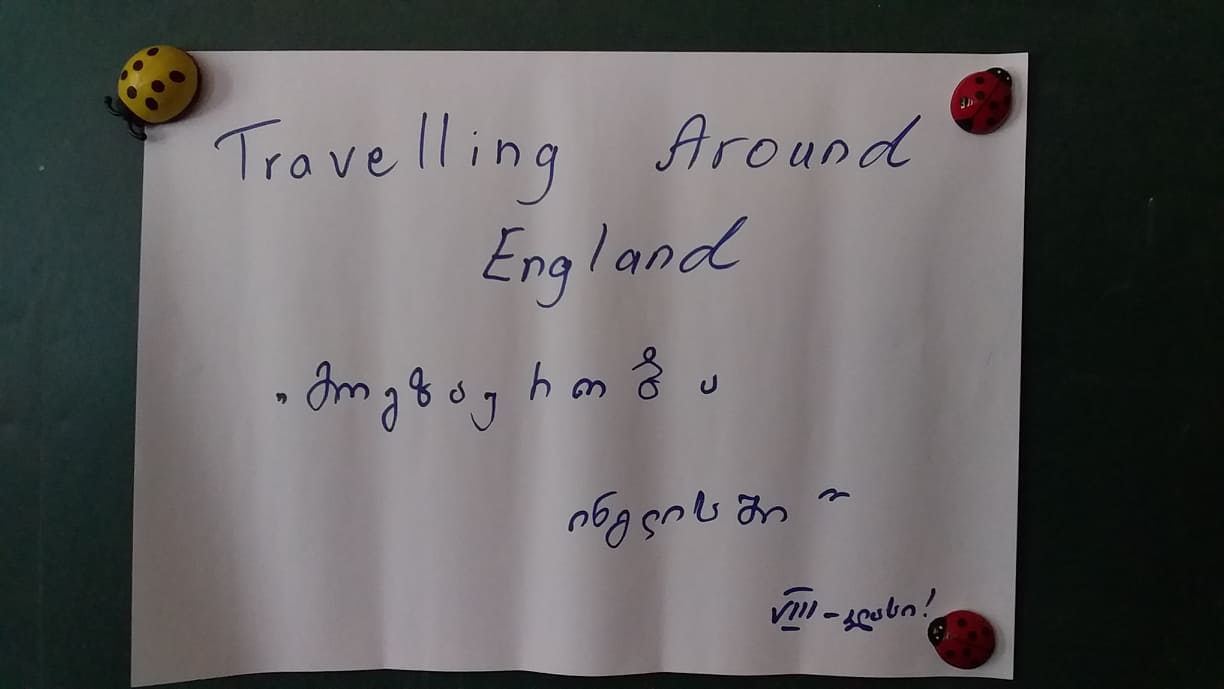 Travelling Around
England
„მოგზაურობა
ინგლისში“
VIII - კლასი!